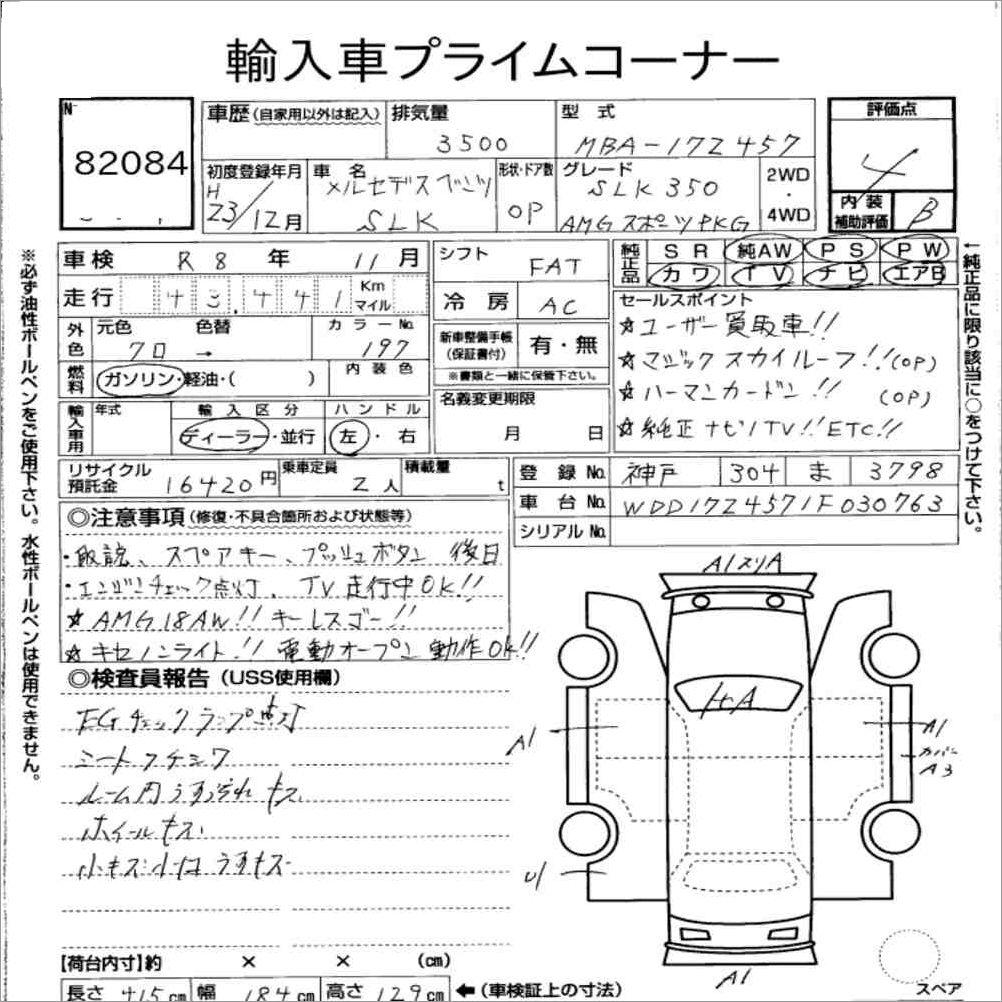 輸入車プライムコーナー
No. 82084
車歴(自家用以外は記入) 排気量 3500 型式 MBA-172457
評価点 4
初度登録年月 H 23/12月 車名 メルセデスベンツ SLK 形状・ドア数 OP グレード SLK350 AMGスポーツPKG 2WD・4WD
内装補助評価 B
車検 R8年 11月 シフト FAT
純正品 SR 純AW PS PW
カワ TV ナビ エアB
走行 43,441 Km マイル 冷房 AC
セールスポイント
外色 元色 クロ 色替 → カラーNo. 197
新車整備手帳(保証書付) 有・無
※書類と一緒に保管下さい。
☆ユーザー買取車!!
☆マジックスカイルーフ!!(OP)
燃料 ガソリン・軽油・( ) 内装色
名義変更期限 月 日
☆ハーマンカードン!! (OP)
輸入車用 年式 輸入区分 ディーラー・並行 ハンドル 左・右
☆純正ナビ!TV!!ETC!!
リサイクル預託金 16420円 乗車定員 2人 積載量 t
登録No. 神戸 304 ま 3798
車台No. WDD1724571F030763
シリアルNo.
◎注意事項(修復・不具合箇所および状態等)
・取説、スペアキー、プッシュボタン 後日
・エンジンチェック点灯、TV走行中OK!!
☆AMG18AW!! キーレスゴー!!
☆キセノンライト!! 電動オープン動作OK!!
◎検査員報告(USS使用欄)
EGチェックランプ点灯
シートスレシワ
ルーム内うすよごれキズ
ホイールキズ
小キズ小凹うすキズ
A1スリA
A
A1
A1
カバー
A3
U1
A1
スペア
【荷台内寸】約 × × (cm)
長さ 415cm 幅 184cm 高さ 129cm ←(車検証上の寸法)
※必ず油性ボールペンをご使用下さい。水性ボールペンは使用できません。
←純正品に限り該当に○をつけて下さい。